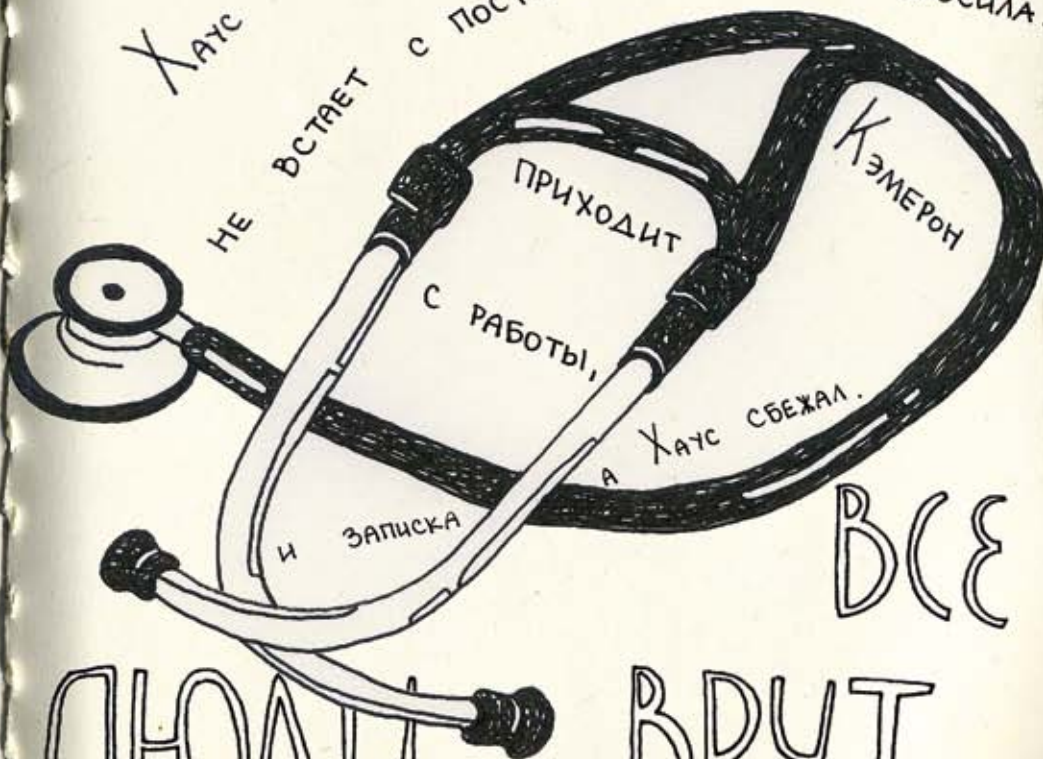 Хаус
НЕ ВСТАЕТ С
Кэмерон
ПРИХОДИТ
С РАБОТЫ,
а Хаус СБЕЖАЛ.
И ЗАПИСКА
ВСЕ
ЛЮДИ ВРУТ